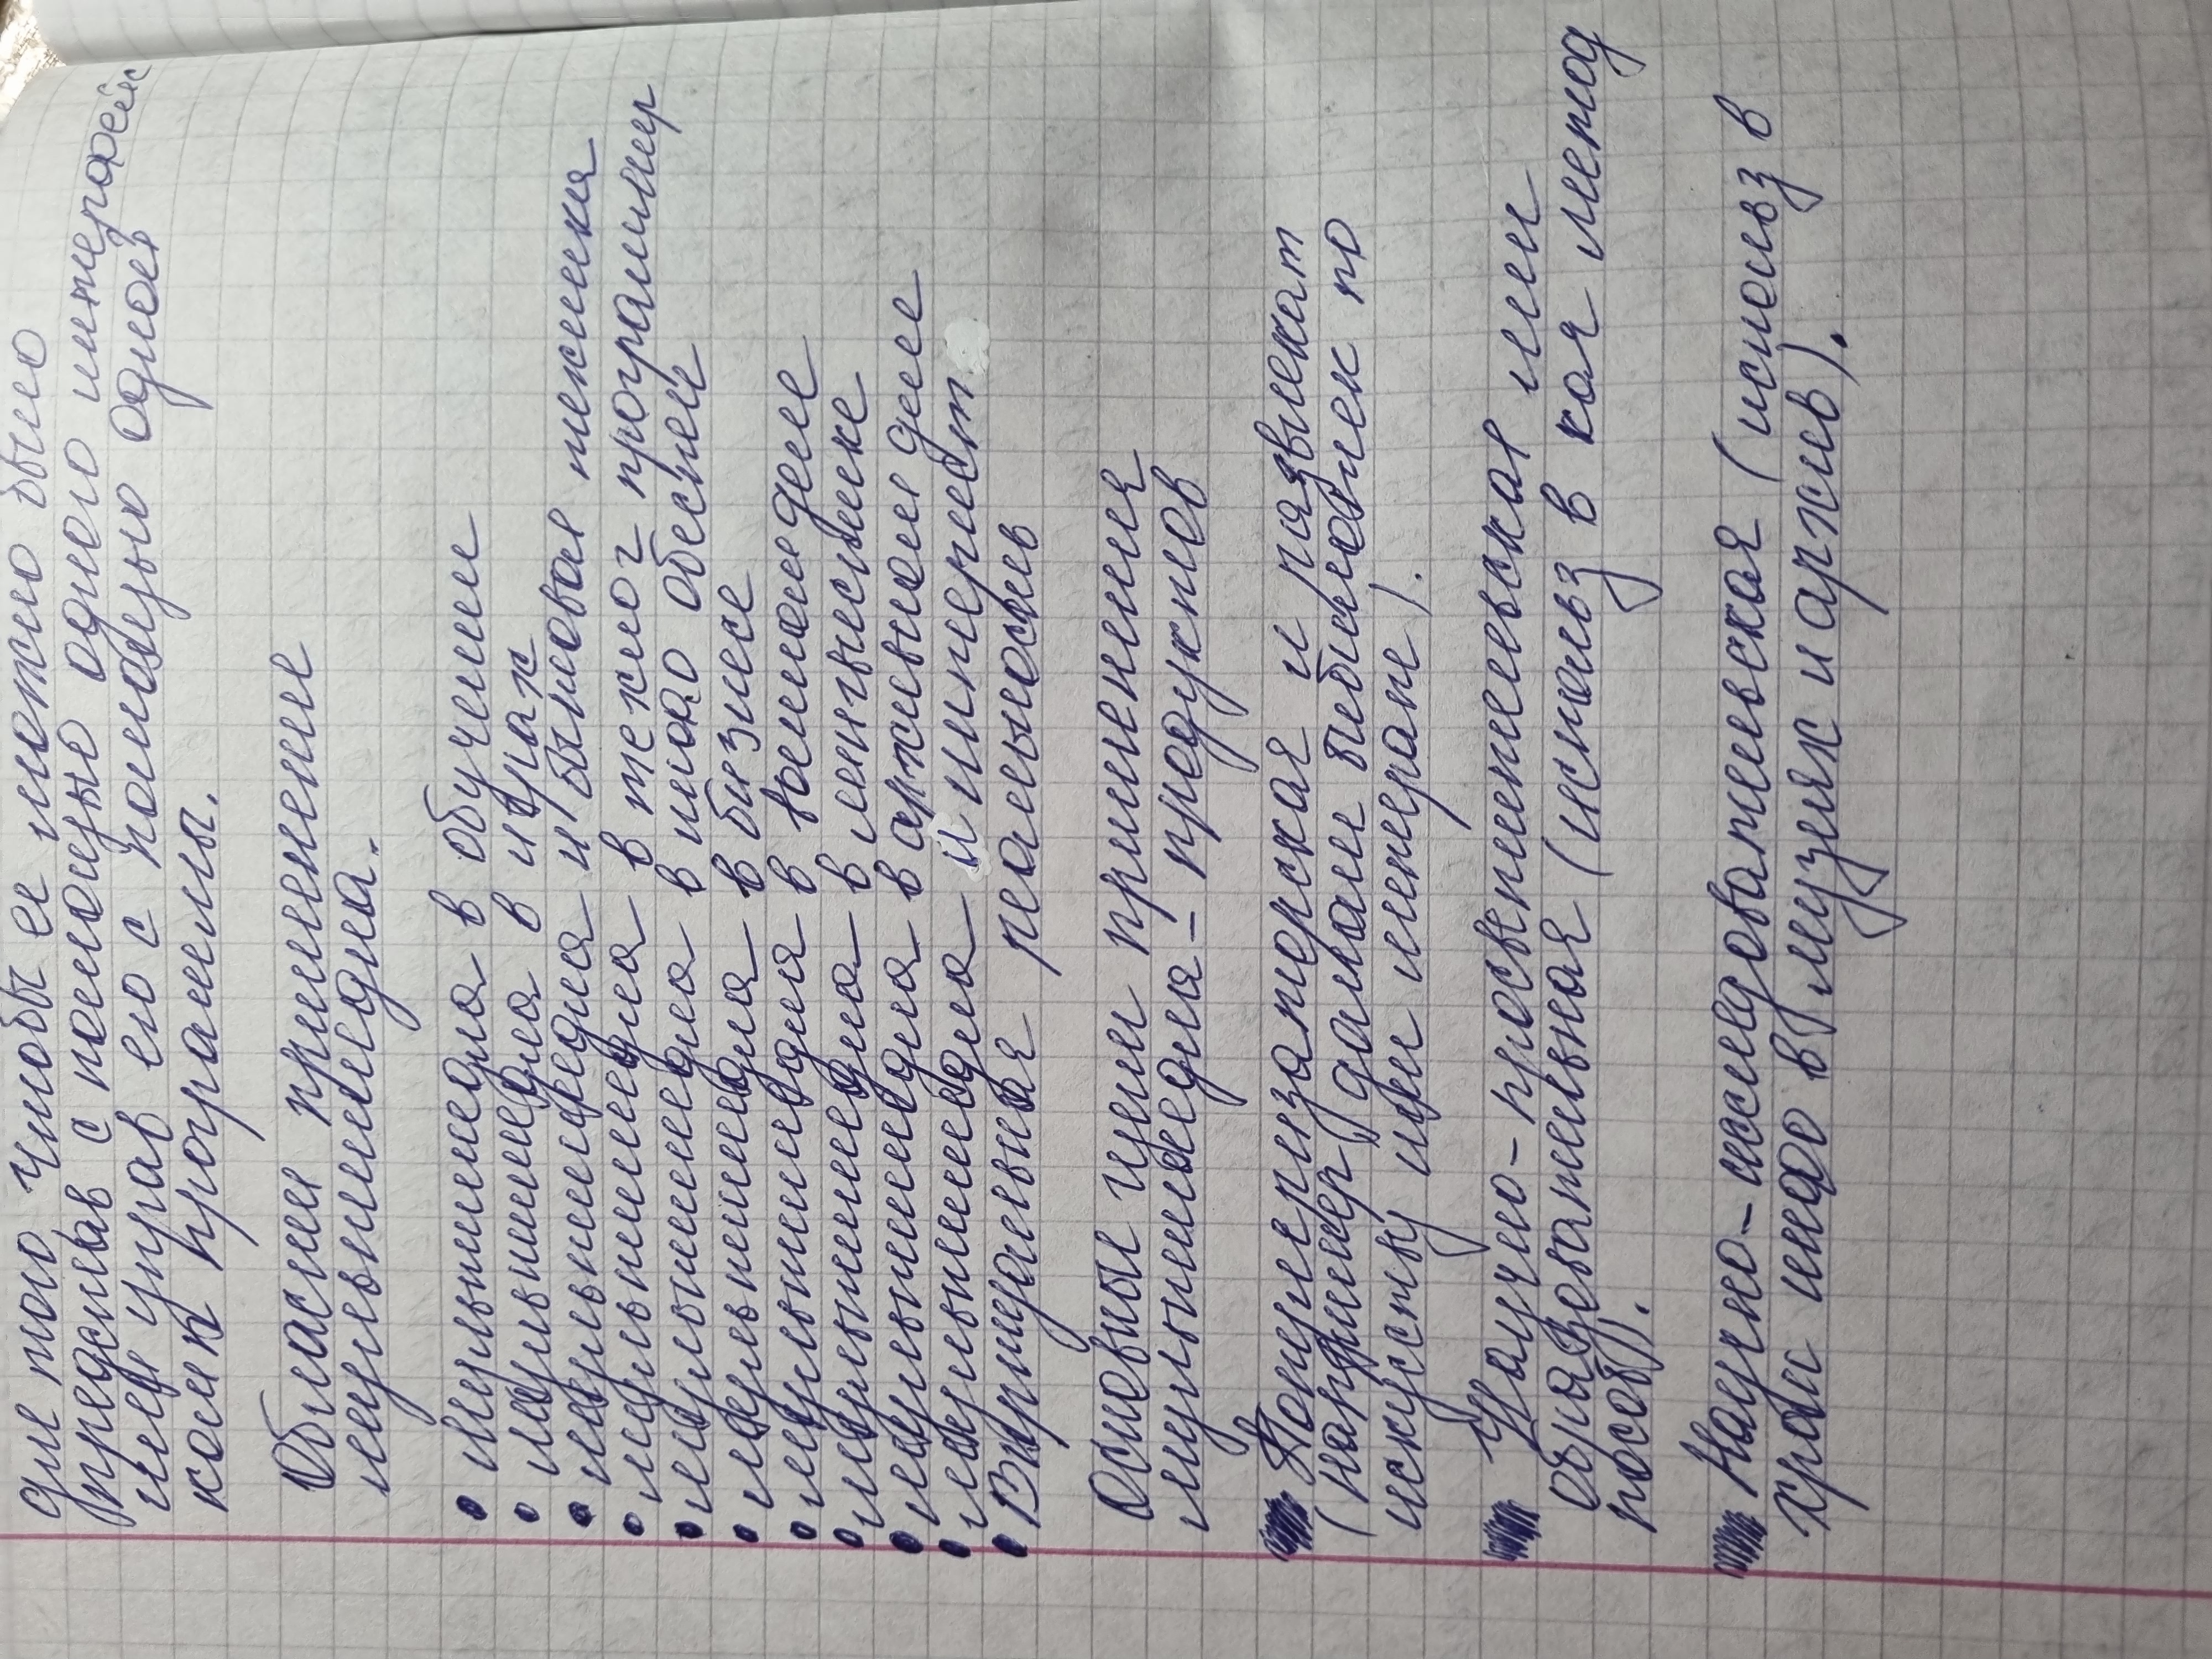 для того, чтобы ее можно было
представ с помощью одного интерфейс
или управ ею с помощью одной
комп программы.
Области применение
мультимедиа.
• Мультимедиа в обучении
• мультимедиа в играх
• мультимедиа и бытовая техника
• мультимедиа в технол программир
• мультимедиа в инфо обеспеч
• мультимедиа в бизнесе
• мультимедиа в военном деле
• мультимедиа в лингвистике
• мультимедиа в архивном деле
• мультимедиа и интернет
• Виртуальная реальность
Основные цели применения
мультимедиа - продуктов
Популяризаторская и развлекат
(например, домаш библиотек по
искусству или литерат).
Научно-просветительская или
образовательная (использ в кач метод
пособ).
Научно-исследовательская (использ в
хран инфо в музеях и архив).